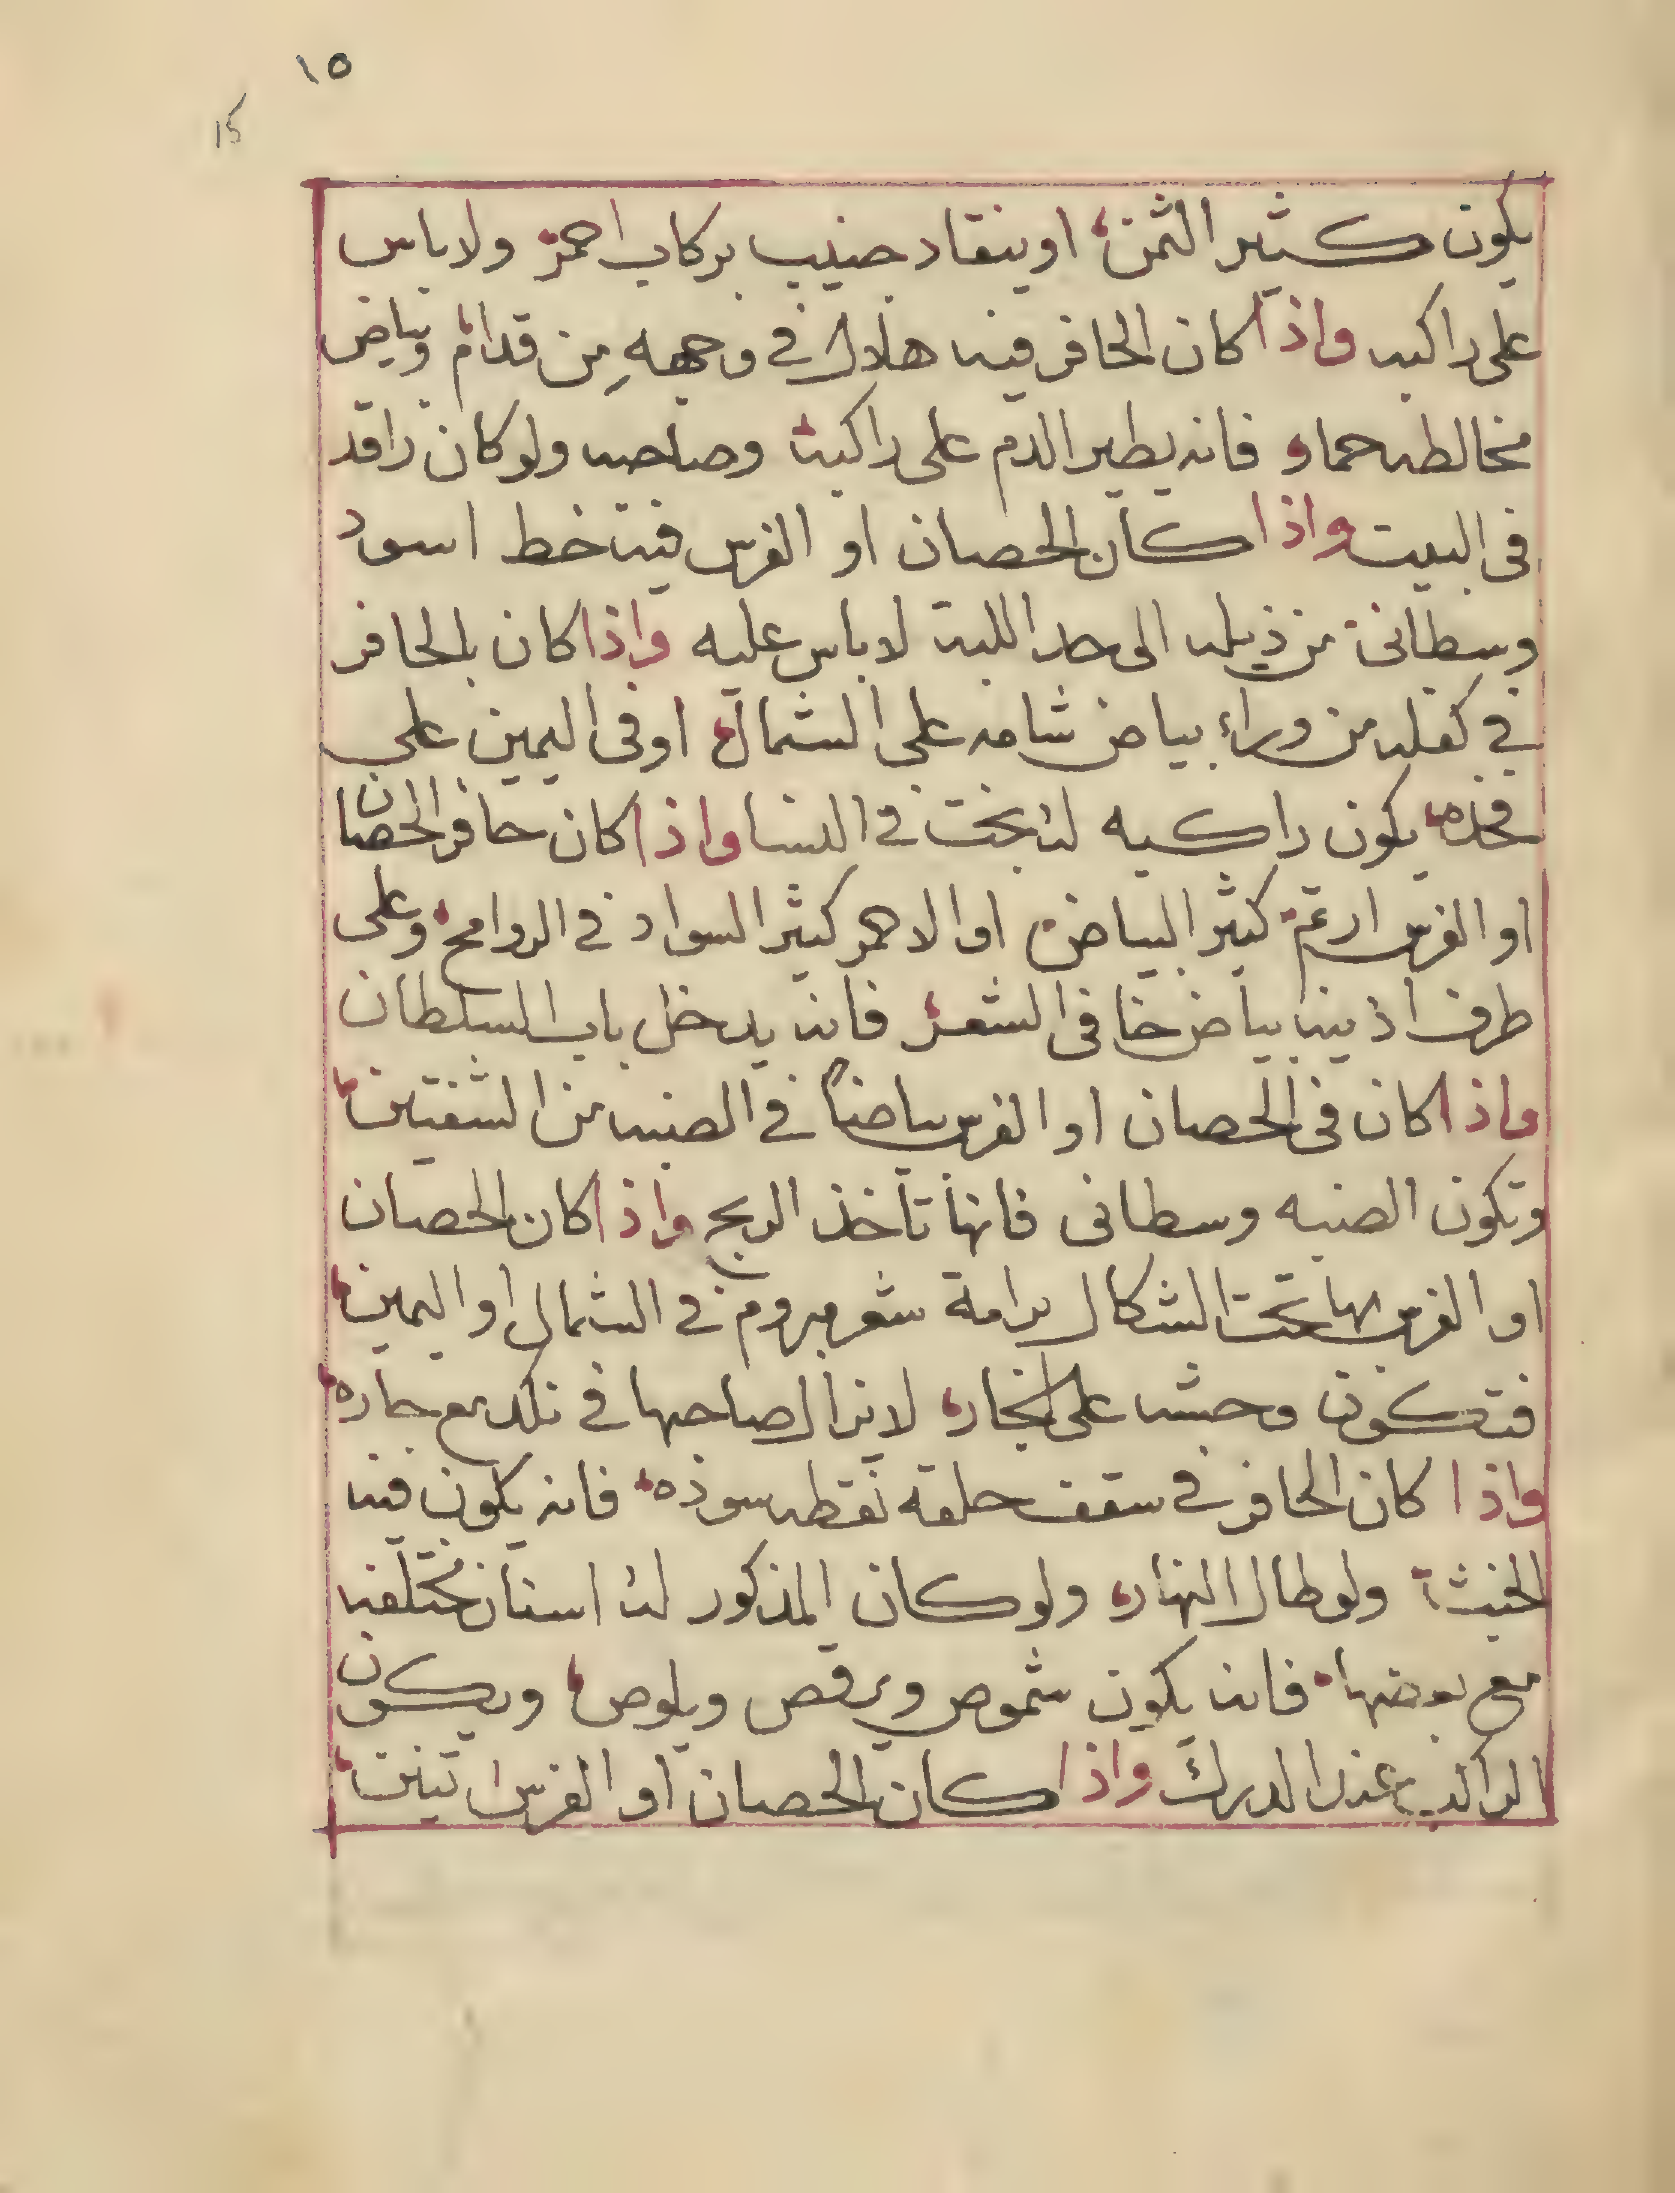 ١٥
15
يكون كثير الثمن او ينقاد جنيب بركاب احمر ولا باس
على راكبه واذا كان الحافر فيه هلال في وجهه من قدام وبياض
مخالطه حمار فانه يطير الدم على راكبه وصاحبه ولو كان راقد
في البيت واذا كان الحصان او الفرس فيه خط اسود
وسطاني من ذيله الى حد اللبه لا باس عليه واذا كان بالحافر
في كفله من وراء بياض شامه على الشمال او في اليمين على
فخده يكون راكبه له بخت في النسا واذا كان حافر الحصان
او الفرس ارثم كثير البياض او الاحمر كثير السواد في الروامح وعلى
طرف اذنيه بياض خافى الشعر فانه يدخل باب السلطان
واذا كان في الحصان او الفرس بياضاً في الصنبه من الشفتين
وتكون الصنبه وسطانى فانها تأخذ الريح واذا كان الحصان
او الفرس بها تحت الشكال برامة شعر مبروم في الشمال او اليمين
فتكون وحشه على الجار لا يزال صاحبها في نكد مع جاره
واذا كان الحافر في سقف حلقه نقطه سوده فانه يكون فيه
الخبث ولو طال النهار ولو كان المذكور له اسنان مختلفه
مع بعضها فانه يكون شموص ويرقص ويلوص ويكون
الراكب عند الدرك واذا كان الحصان او الفرس اتنين